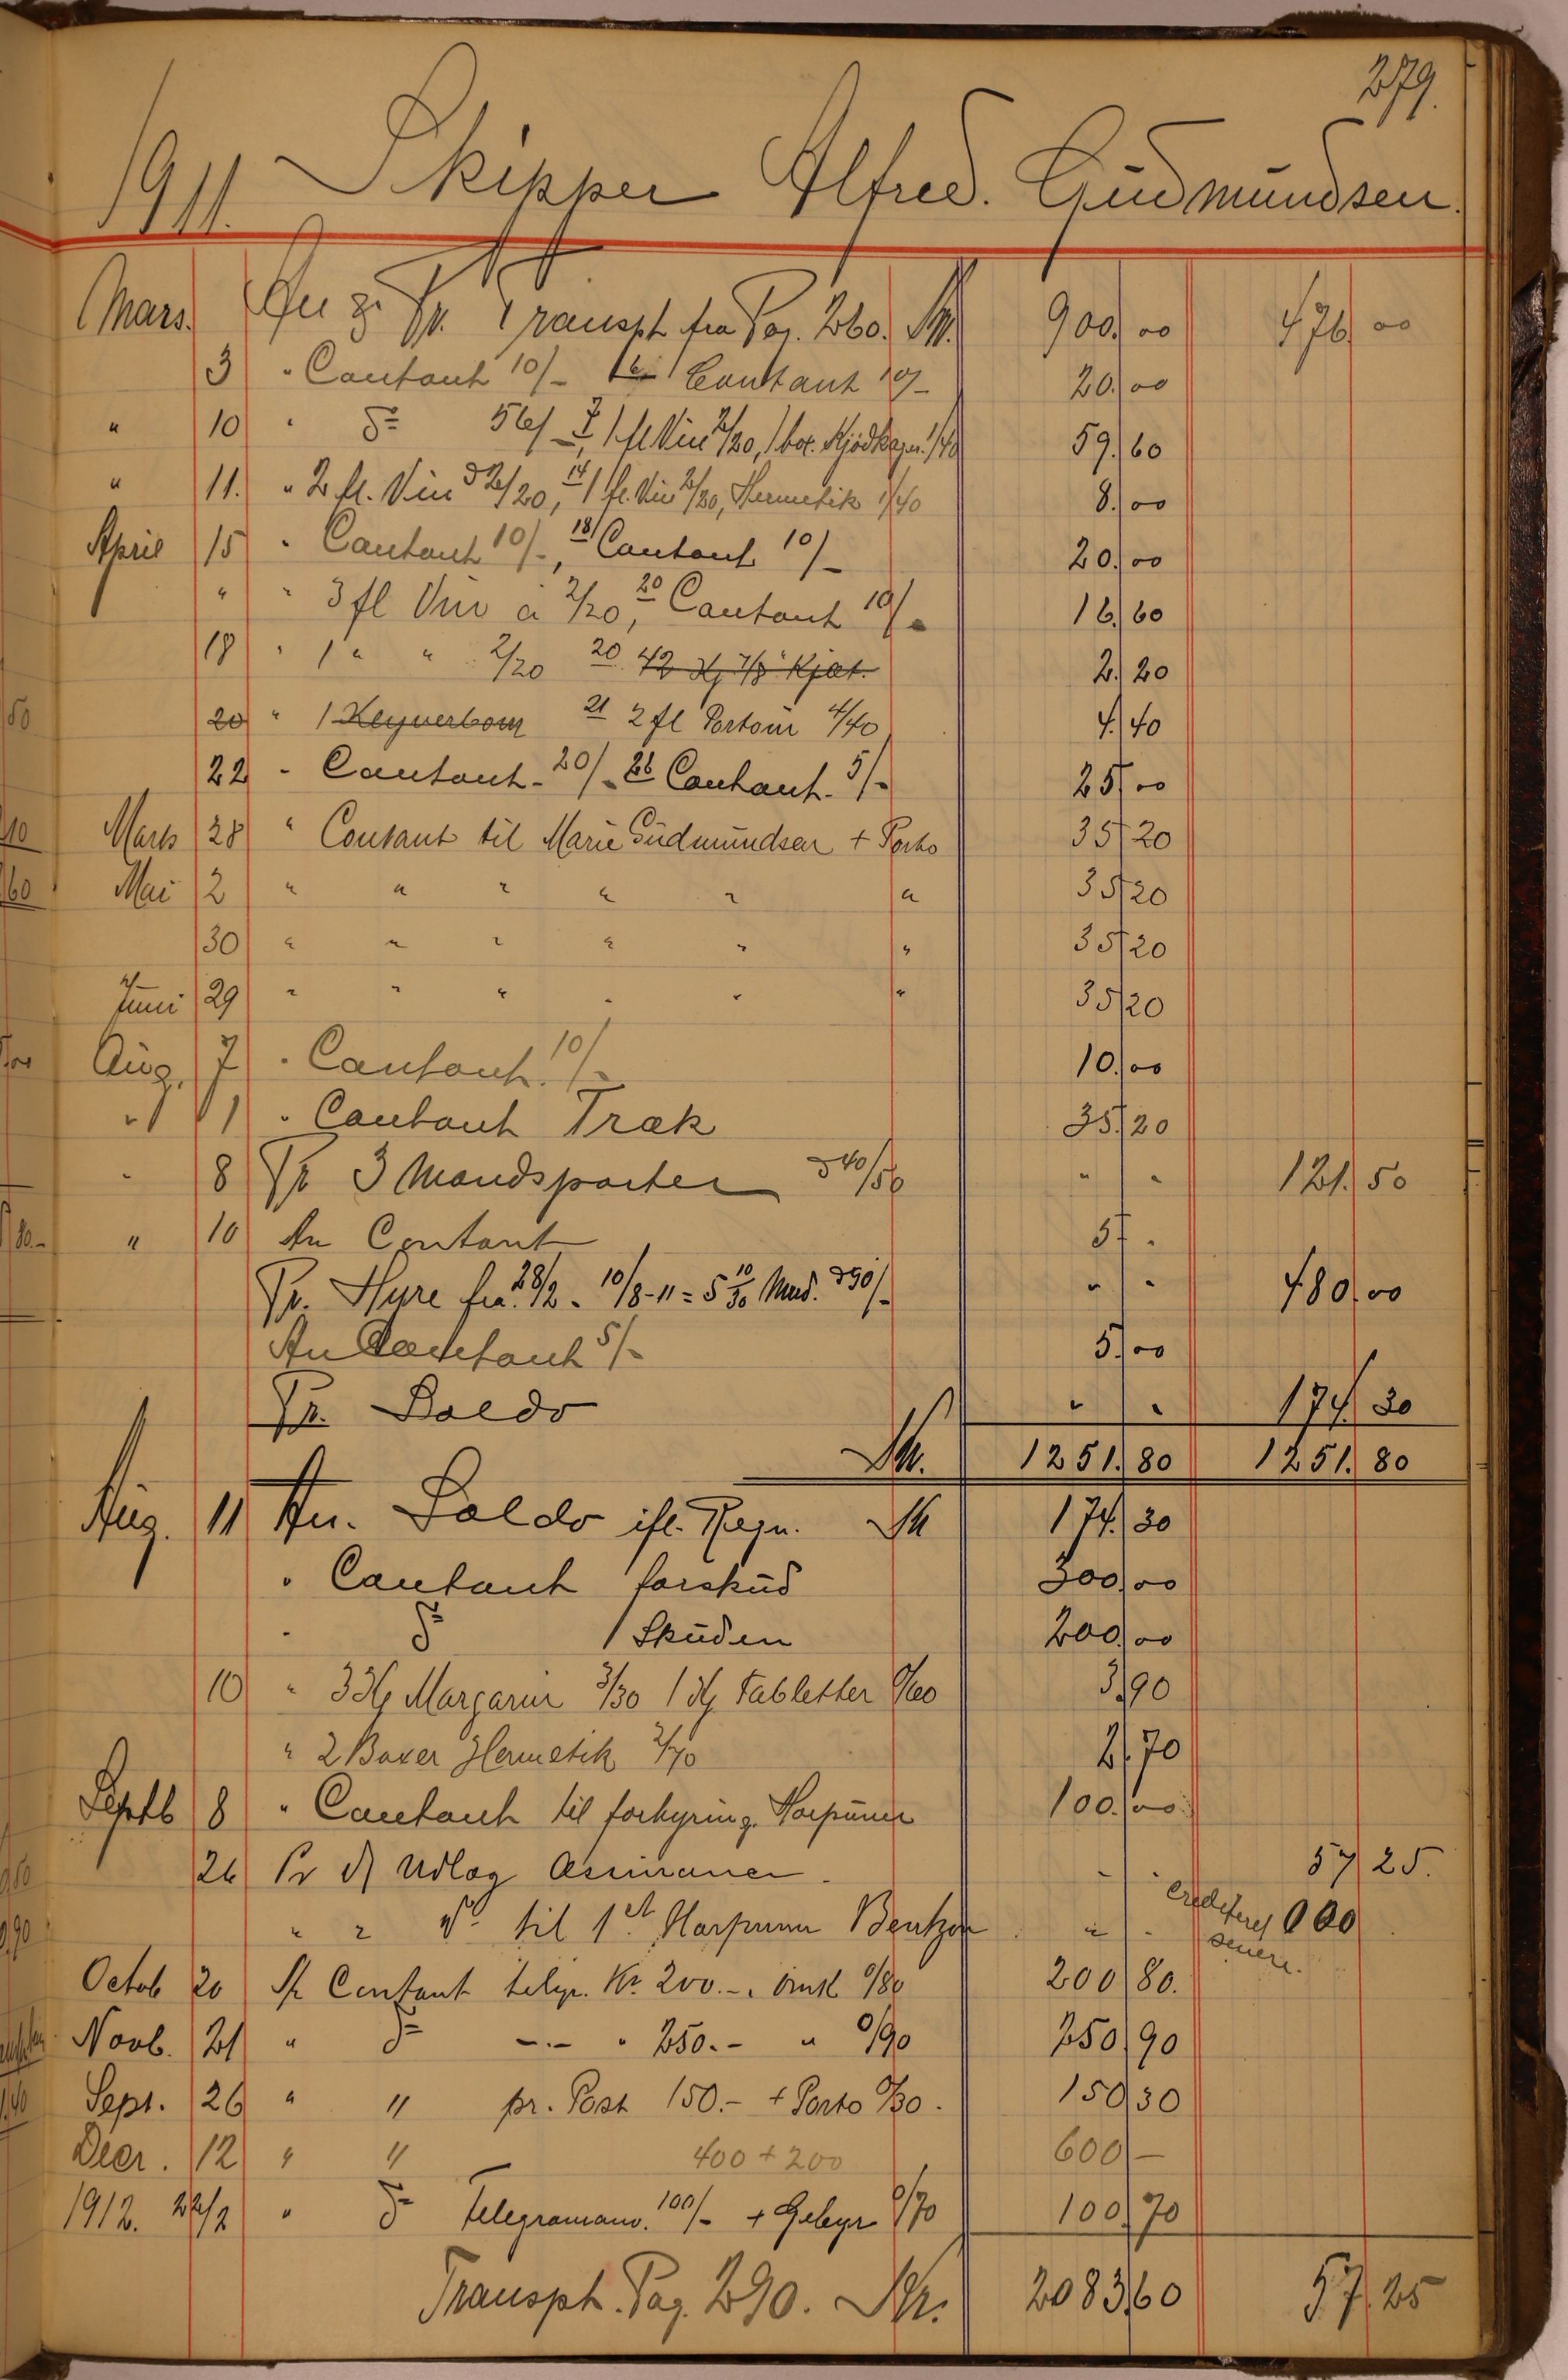 279.
1911. Skipper Alfred. Gudmundsen.
Mars. An & Pr. Transpt fra Pag. 260. Kr. 900.00 476.00
3 " Contant 10/- Contant 10/- 20.00
" 10 " do 56/-, 7 1 fl Vin 2/20, 1 box. Kjødkager 1/40 59.60
" 11. " 2 fl. Vin à 2/20, 14 1 fl. Vin 2/20, Hermetik 1/40 8.00
April 15 " Contant 10/-, 18 Contant 10/- 20.00
" " 3 fl Vin à 2/20, 20 Contant 10/- 16.60
18 " 1 " " 2/20 20 42 Kg 7/8 Kjøt. 2.20
20 " 1 21 2 fl Portvin 4/40 4.40
22 " Contant 20/- 26 Contant 5/- 25.00
Marts 28 " Contant til Marie Gudmundsen + Porto 35 20
Mai 2 " " " " " " 35 20
30 " " " " " " 35 20
Juni 29 " " " " " " 35 20
Aug. 7 " Contant 10/- 10.00
" 1 " Contant Træk 35.20
" 8 Pr 3 Mandsparter à 40/50 " " 121.50
" 10 An Contant 5 .
Pr. Hyre fra 28/2 - 10/8-11 = 5 10/30 Mnd. à 90/- " " 480.00
An Contant 5/- 5.00
Pr. Saldo " " 174.30
Kr. 1251.80 1251.80
Aug. 11 An. Saldo ifl. Regn. Kr 174.30
" Contant forskud 300.00
" do 1 Skuden 200.00
10 " 3 Kg Margarin 3/30 1 Kg Tabletter 0/60 3.90
" 2 Boxer Hermetik 2/70 2.70
Septb 8 " Contant til forhyring. Harpuner 100.00
26 Pr d/ Udlæg Assurance - - 57 25.
" " do til 1st Harpuner Bentzon " - crediteret senere. 000
Octob 20 Contant telgr. Kr. 200.-. omk 0/80 200 80.
Novb. 21 " do -.- " 250.- " 0/90 250 90
Sept. 26 " " pr. Post 150.- + Porto 0/30. 150 30
Decr. 12 " " 400 + 200 600 -
1912. 22/2 " do Telegramanv. 100/- + Gebyr 0/70 100.70
Transpt. Pag. 290. Kr. 2083.60 57.25